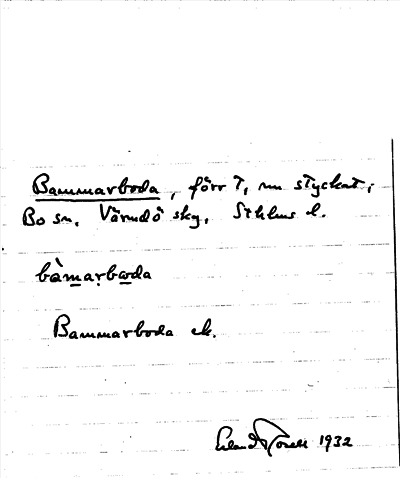 Bammarboda, förr T, nu styckat;
Bo sn. Värmdö skg. Sthlms l.
bàmarboda
Bammarboda ek.
Erland Rosell 1932